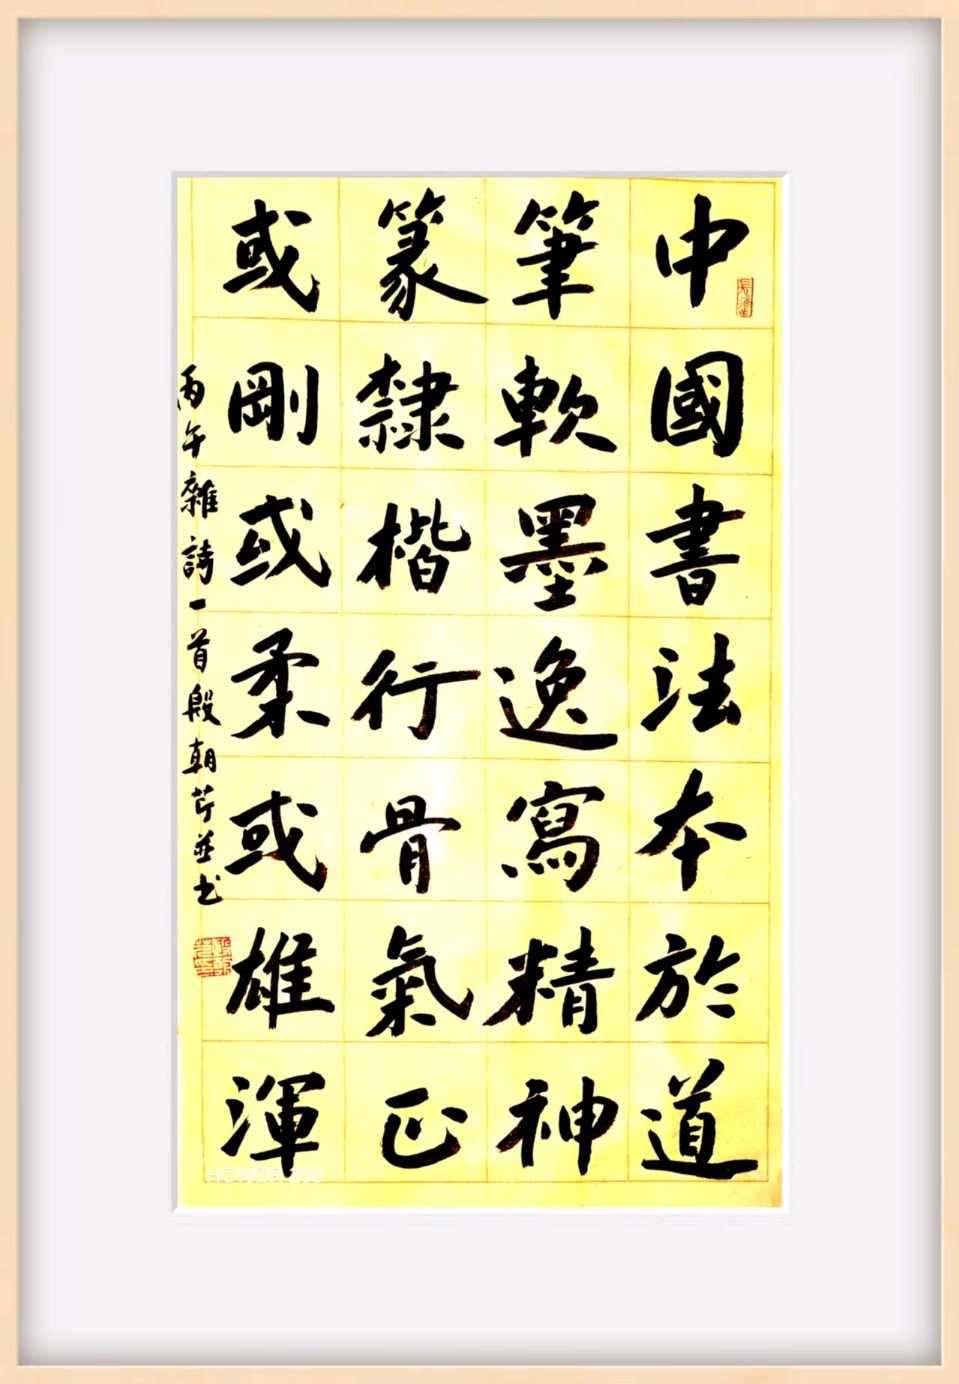 中國書法本於道
筆軟墨逸寫精神
篆隸楷行骨氣正
或剛或柔或雄渾
丙午雜詩一首殷朝芹並书
HONOR 200